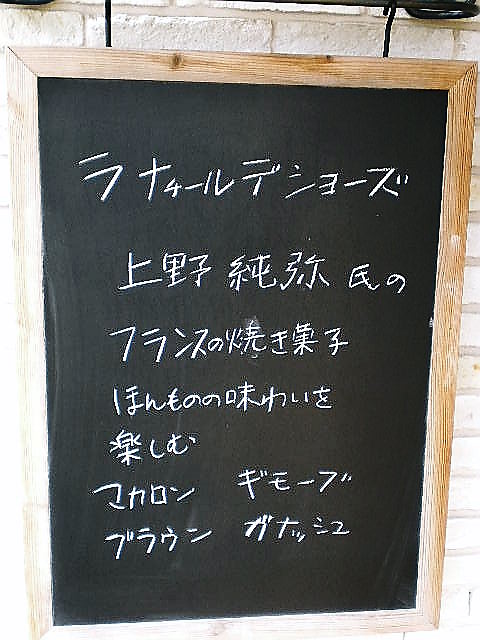 ラ ナチュールデ ショーズ
上野 純弥 氏の
フランスの焼き菓子
ほんものの味わいを
楽しむ
マカロン ギモーブ
ブラウン ガナッシュ